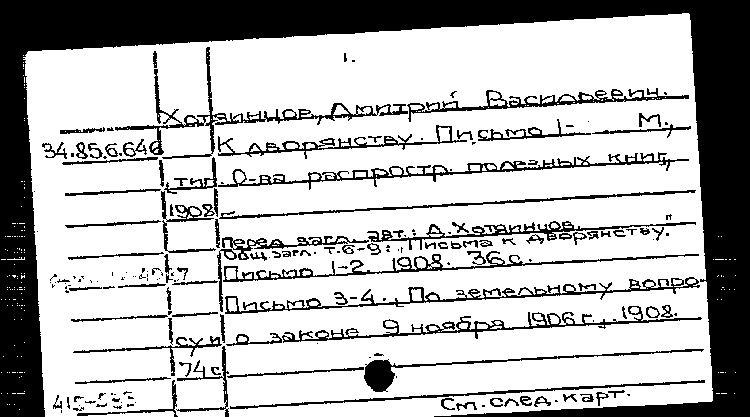 1.
Хотяинцов, Дмитрий Васильевич.
34.85.6.646 К дворянству. Письмо 1- М.,
тип. О-ва распростр. полезных книг,
1908 -
Перед загл. авт.: Д. Хотяинцов.
Общ. загл. т. 6-9: "Письма к дворянству."
Письмо 1-2. 1908. 36 с.
Письмо 3-4. По земельному вопро-
су и о законе 9 ноября 1906 г. 1908.
74 с
См. след. карт.